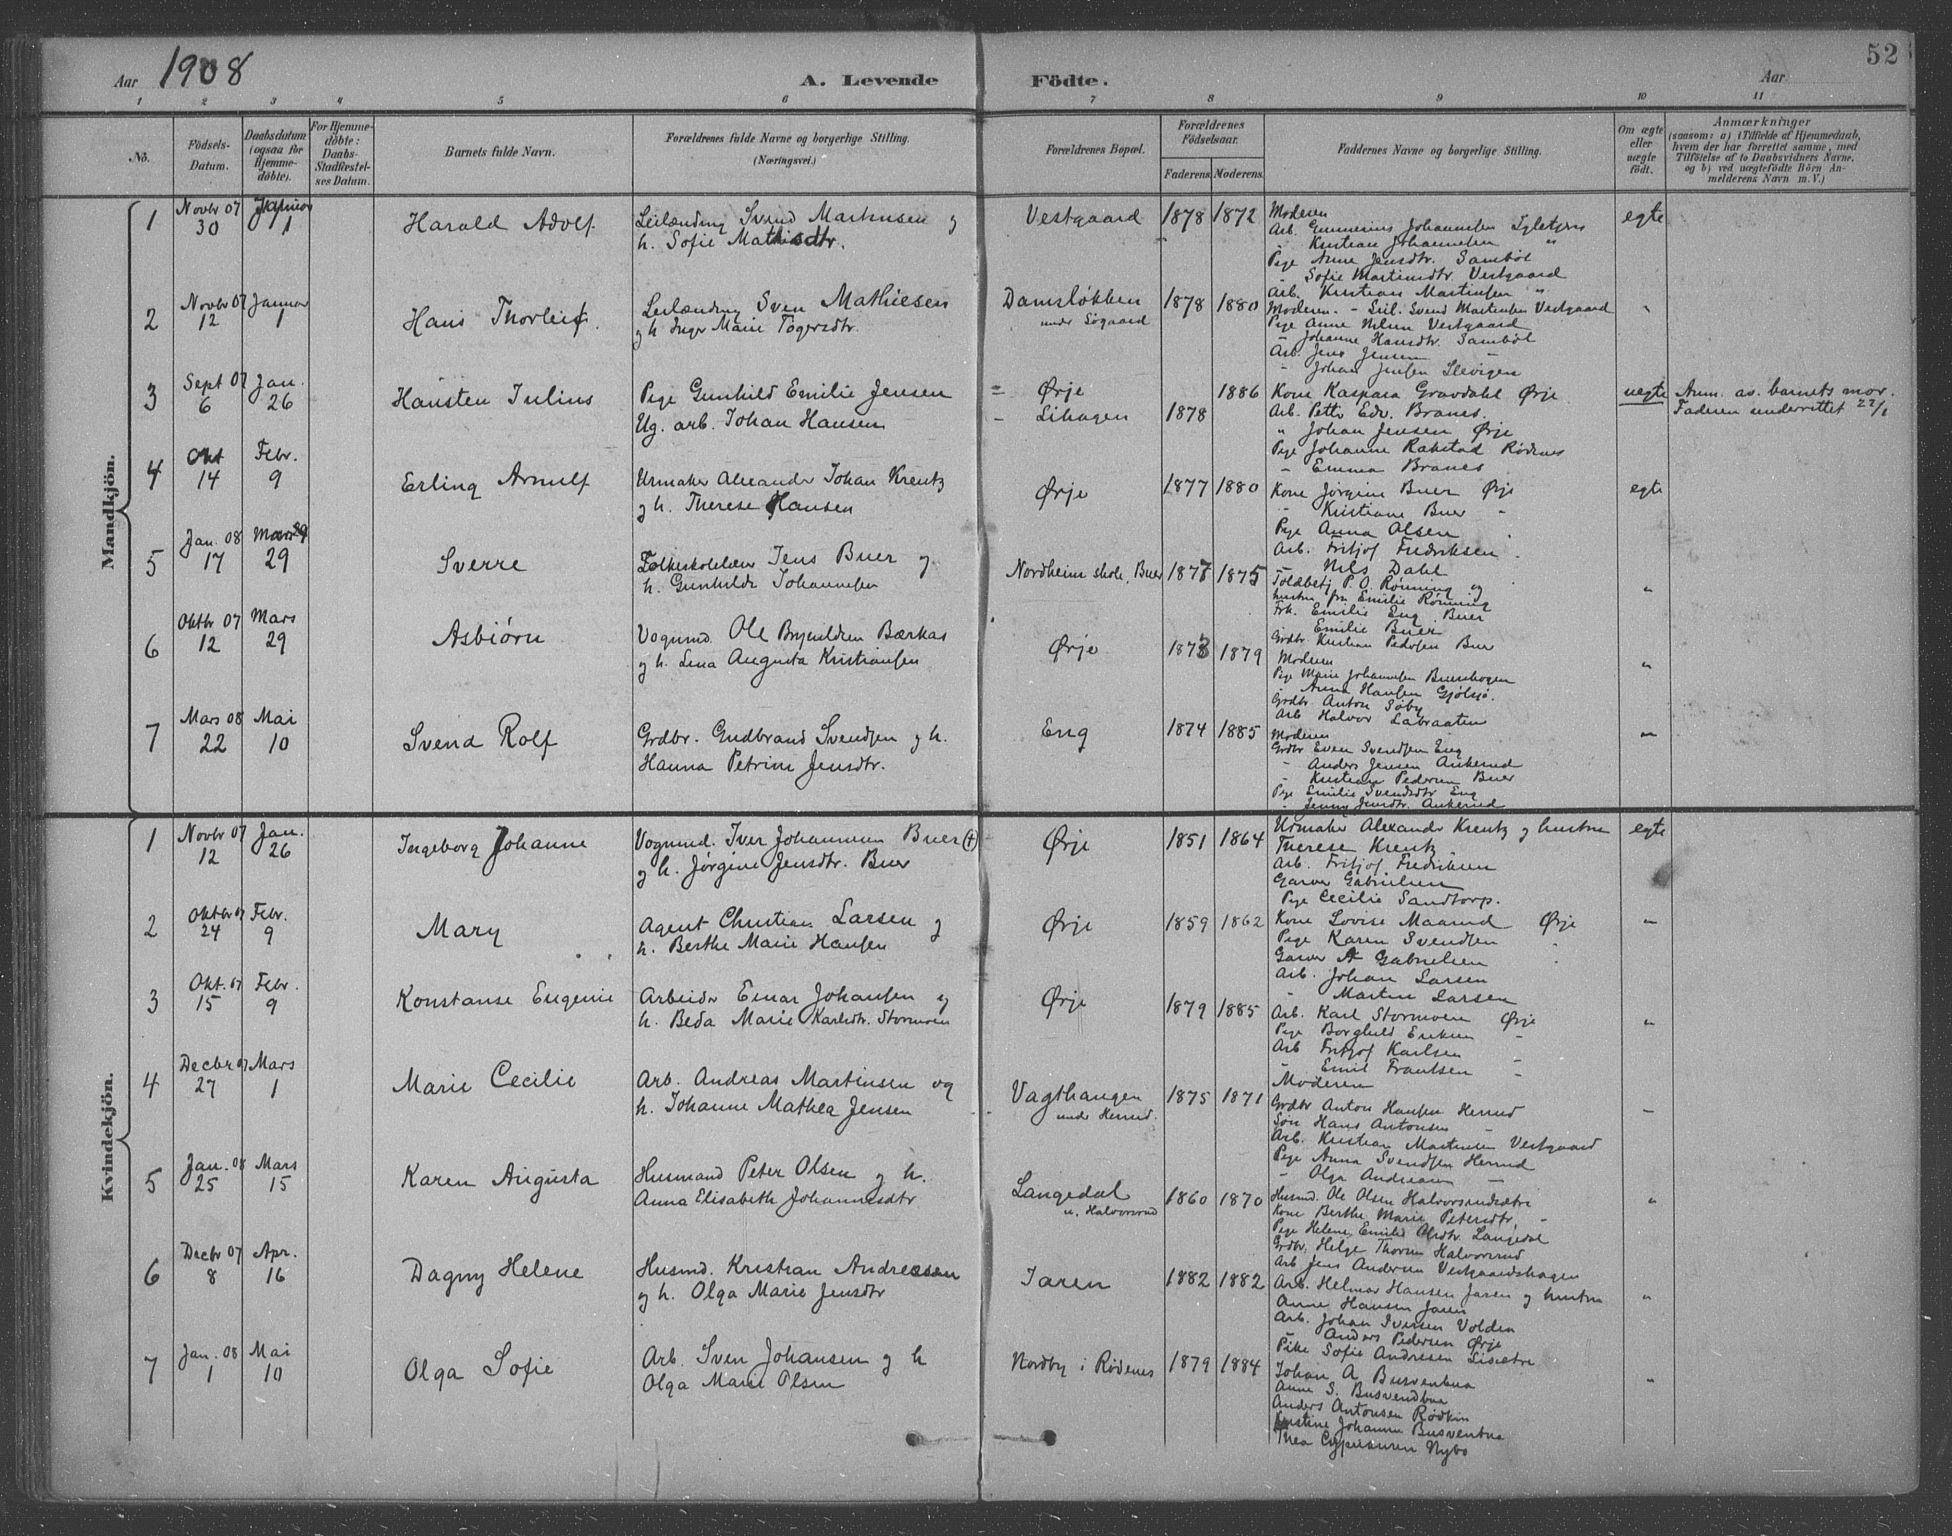 Aar 1908 A. Levende Födte. Aar 52
1 2 3 4 5 6 7 8 9 10 11
No. Födsels-Datum. Daabsdatum (ogsaa for Hjemme-döbte). For Hjemme-döbte: Daabs-Stadfæstel-ses Datum. Barnets fulde Navn. Forældrenes fulde Navne og borgerlige Stilling. (Næringsvei.) Forældrenes Bopæl. Forældrenes Födselsaar. Faderens. Moderens. Faddernes Navne og borgerlige Stilling. Om ægte eller uægte födt. Anmærkninger
(saasom: a) i Tilfælde af Hjemmedaab, hvem der har forrettet samme, med Tilföielse af to Daabsvidners Navne, og b) ved uægtefödte Börn An-melderens Navn m. V.)
Mandkjön.
1 Novbr 07 30 Januar 1 Harald Adolf Leilænding Svend Martinsen og
h. Sofie Mathisdtr. Vestgaard 1878 1872 egte
Moderen
Arb. Gunnerius Johannesen
" Kristian Johannesen "
Pige Anne Jensdtr. Sambøl
- Sofie Martinsdtr Vestgaard
Arb. Kristian Martinsen "
2 Novbr 07 12 Januar 1 Hans Thorleif. Leilænding Sven Mathiesen
og h. Inger Marie Tögersdtr. Damsløkken
under Søgaard 1878 1880 "
Moderen. - Leil. Svend Martinsen Vestgaard
Pige Anne Nilsen Vestgaard
- Johanne Hansdtr. Sambøl
Arb. Jens Jensen "
- Johan Jensen Slevigen
3 Sept 07 6 Jan. 26 Hansten Julius Pige Gunhild Emilie Jensen = Ørje 1886
Ug. arb. Johan Hansen - Lihagen 1878
Kone Kaspara Gravdahl Ørje uegte Anm. av. barnets mor.
Arb. Petter Edv. Branes. Faderen underrettet 22/1
" Johan Jensen Ørje
Pige Johanne Rakstad Rødenes
- Emma Branes
4 Okt 14 Febr. 9 Erling Arnulf Urmaker Alexander Johan Krentz
og h. Therese Hansen Ørje 1877 1880 egte
Kone Jørgine Buer Ørje
- Kristiane Buer -
Pige Anna Olsen
Arb. Fritjof Fredriksen
- Nils Dahl
5 Jan. 08 17 Mars 29 29 Sverre Folkeskolelærer Jens Buer og
h. Gunhilde Johannesen Nordheim skole, Buer 1877 1875 "
Toldbetj. P.O. Rønning og
hustru fru Emilie Rønning
Frk. Emilie Eng Buer
Emilie Buer
Grdbr. Kristian Pedersen Buer
6 Oktbr 07 12 Mars 29 Asbiørn Vognmd. Ole Brynildsen Bærkas
og h. Lina Augusta Kristiansen Ørje 1873 1879 "
Moderen
Pige Marie Johannesen Buershagen
- Anna Hansen Gjølsjø.
Grdbr Anton Søby
Arb Halvor Labraaten
7 Mars 08 22 Mai 10 Svend Rolf Grdbr. Gudbrand Svendsen og h.
Hanna Petrine Jensdtr. Eng 1874 1885 "
Moderen
Grdbr Even Svendsen Eng
- Anders Jensen Ankerud
- Kristian Pedersen Buer
Pige Emilie Svendsdtr Eng
- Jenny Jensdtr. Ankerud
Kvindekjön.
1 Novbr 07 12 Jan. 26 Ingeborg Johanne Vognmd. Iver Johannesen Buer (+)
og h. Jørgine Jensdtr. Buer Ørje 1851 1864 egte
Urmaker Alexander Krentz og hustru
Therese Krentz
Arb. Fritjof Fredriksen
Garver Gabrielsen
Pige Cecilie Sandtorp.
2 Oktbr 07 24 Febr. 9 Mary Agent Christian Larsen og
h. Berthe Marie Hansen Ørje 1859 1862 "
Kone Lovise Maarud Ørje
Pige Karen Svendsen "
Garver A Gabrielsen "
Arb. Johan Larsen
- Martin Larsen
3 Okt. 07 15 Febr. 9 Konstanse Eugenie Arbeider Einar Johansen og
h. Beda Marie Karlsdtr. Stormoen Ørje 1879 1885 "
Arb. Karl Stormoen Ørje
Pige Borghild Eriksen -
Arb Fritjof Karlsen -
- Emil Frantsen -
4 Decbr 07 27 Mars 1 Marie Cecilie Arb. Andreas Martinsen og
h. Johanne Mathea Jensen Vagthaugen
under Herrud. 1875 1871 -
Moderen
Grdbr Anton Hansen Herrud
Søn Hans Antonsen -
Arb. Kristian Martinsen Vestgaard
Pige Anna Svendsen Herrud
- Olga Andreasen -
5 Jan. 08 25 Mars 15 Karen Augusta Husmand Peter Olsen og h.
Anna Elisabeth Johannesdtr Langedal
u. Halvorsrud 1860 1870 "
Husmd. Ole Olsen Halvorsrudsætre
Kone Berthe Marie Petersdtr. -
Pige Helene Emilie Olsdtr. Langedal
Grdbr. Helge Thorsen Halvorsrud
Arb Jens Andersen Vestgaardshagen
6 Decbr 07 8 Apr. 16 Dagny Helene Husmd. Kristian Andreassen
og h. Olga Marie Jensdtr Jaren 1882 1882 "
Arb. Helmar Hansen Jaren og hustru
Anne Hansen Jaren
Arb. Johan Iversen Volden
- Anders Pedersen Ørje
Pike Sofie Andresen Lisætre
7 Jan. 08 1 Mai 10 Olga Sofie Arb. Sven Johansen og h
Olga Marie Olsen Nordby i Rødenes 1879 1884 "
Johan A Busvenbua
Anne S. Busvendbua
Anders Antonsen Rødkin
Kristine Johanne Busvenbua
Thea Nybo